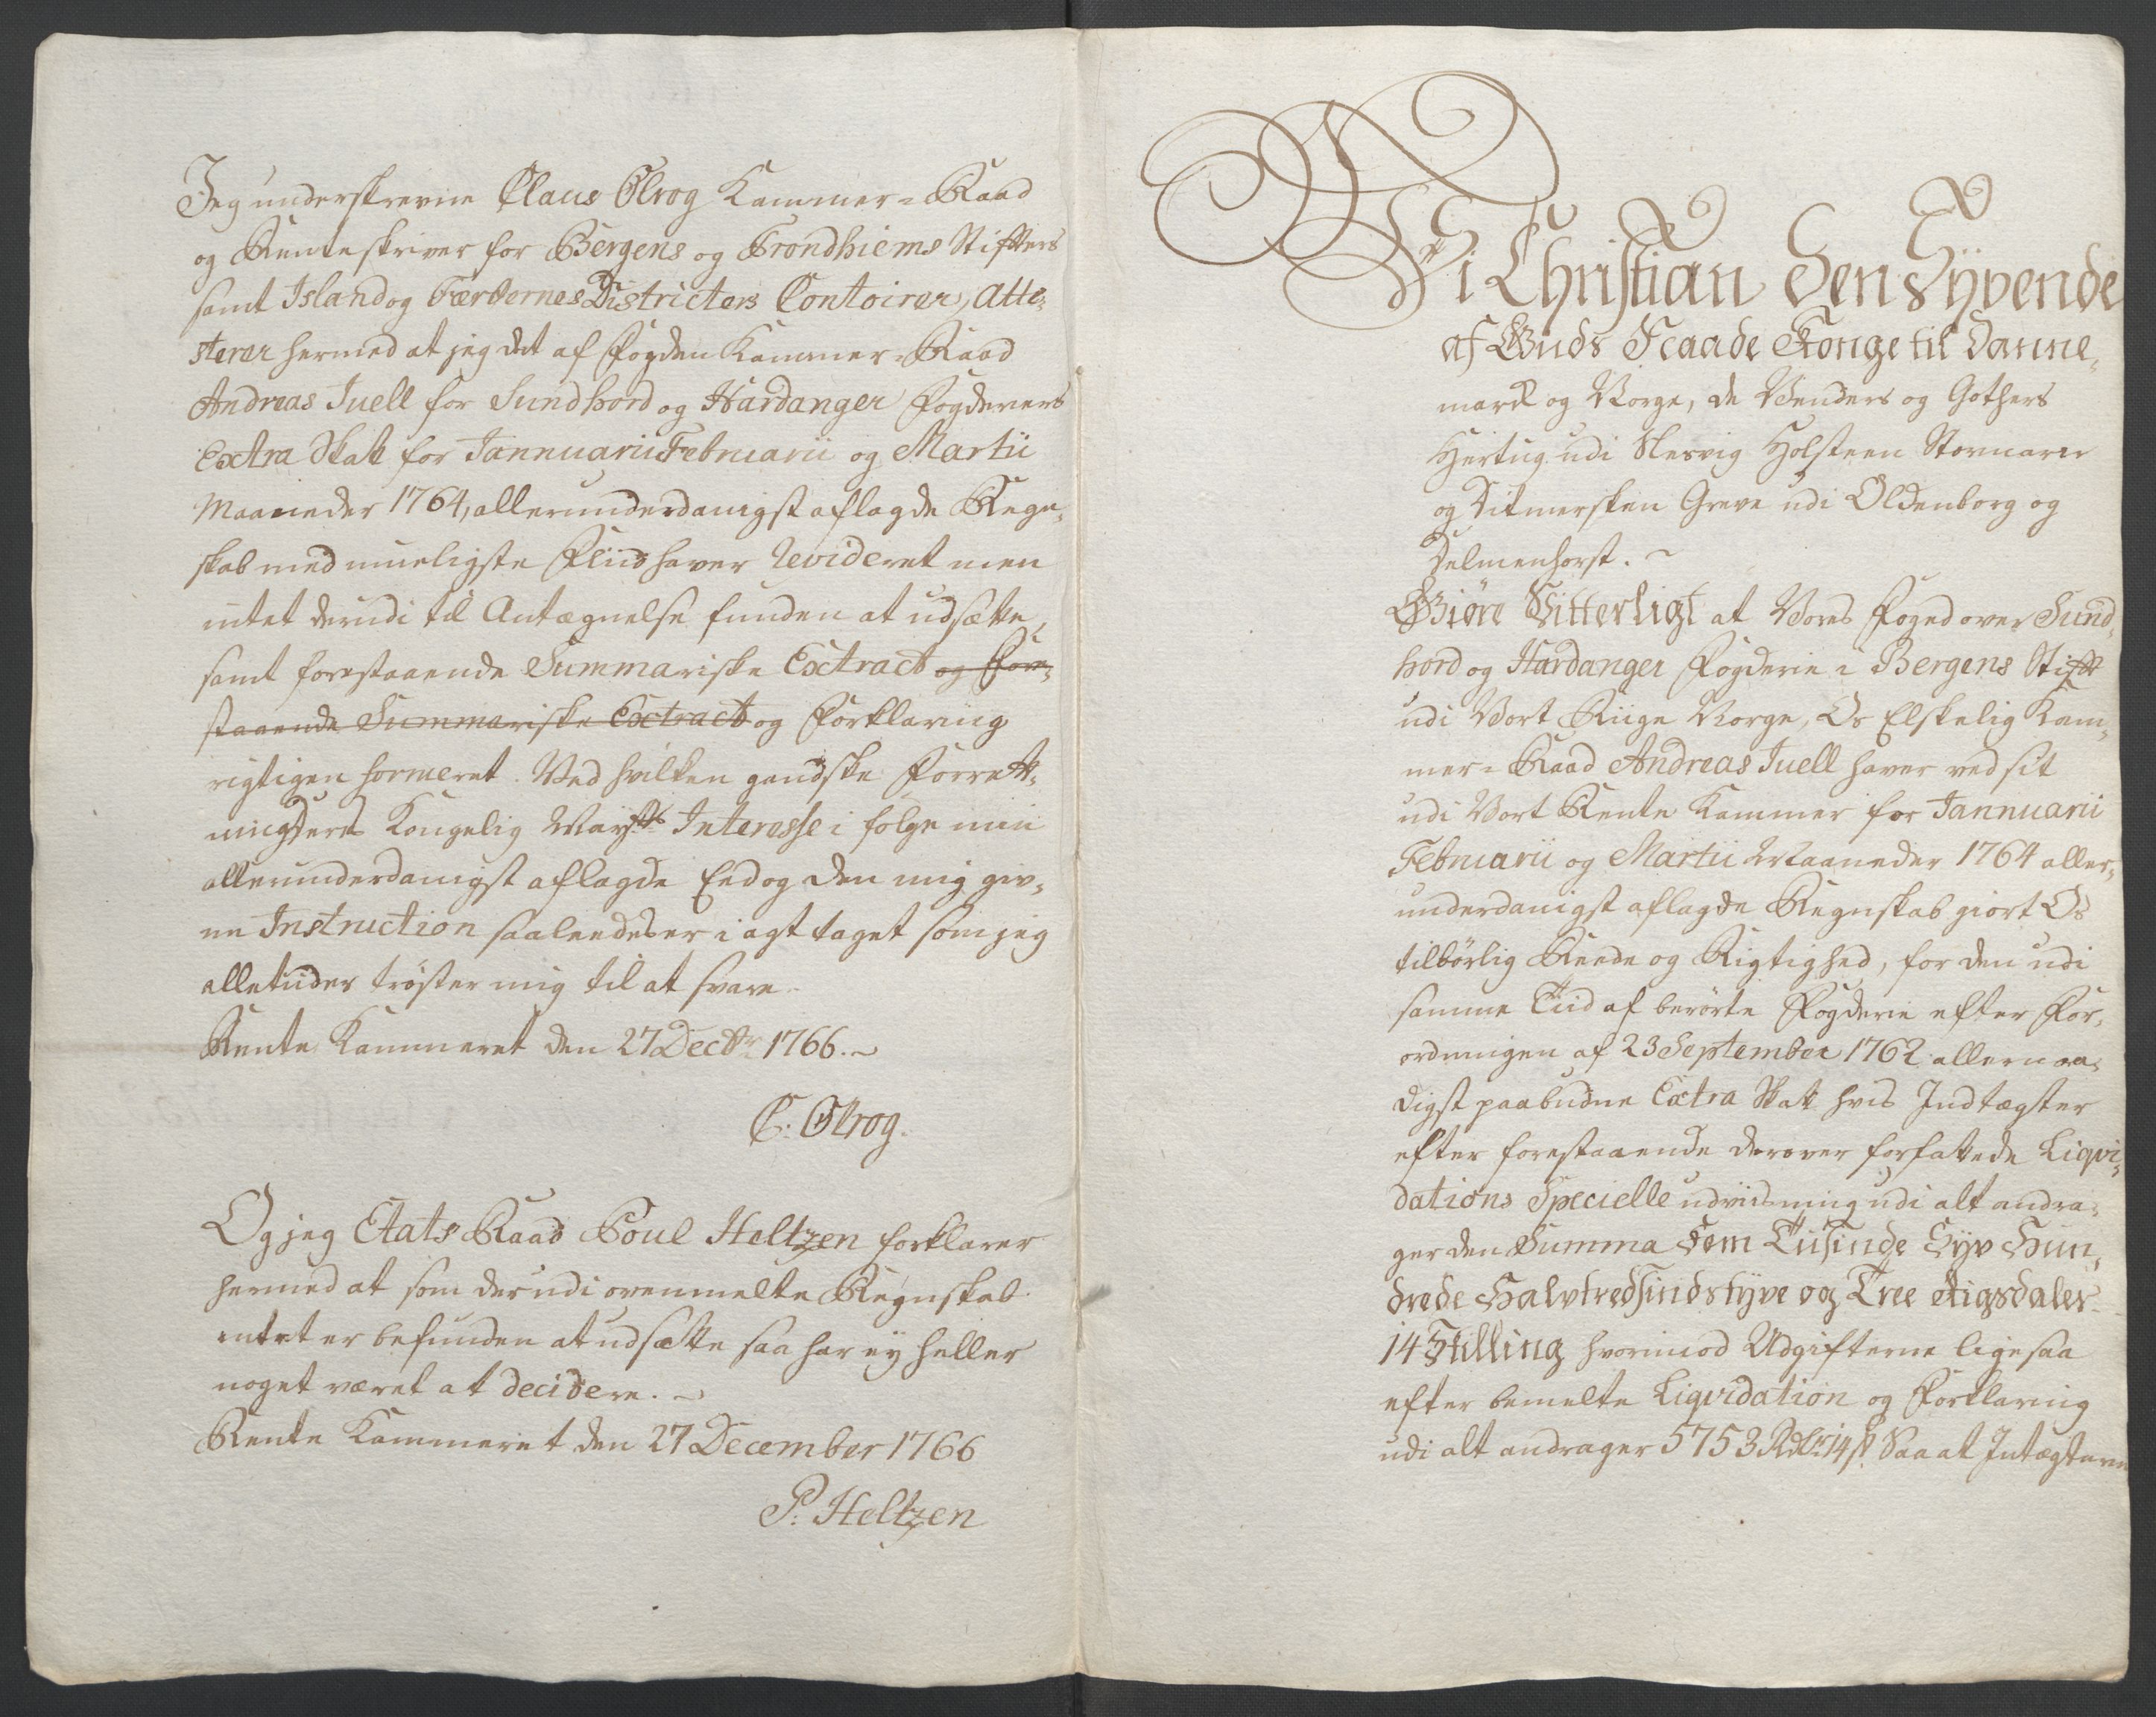 Jeg underskrevne Claus Olrog Kammer-Raad
og Renteskriver for Bergens og Trondhiems Stifters
samt Island og Færøernes Districters Contoirer, Atte-
sterer hermed at jeg det af Fogden Kammer-Raad
Andreas Juell for Sundhord og Hardanger Fogderiers
Extra Skatt for Jannuarii Februarii og Martii
Maaneder 1764, allerunderdanigst aflagde Regn-
skab med mueligste Fliid haver Revideret men
intet derudi til Antægnelse funden at udsætte,
samt forestaaende Summariske Extract og Fore-
staaende Summariske Extract og Forklaring
rigtigen formeret. Ved hvilken gandske Forrett-
ning Deres Kongelig Mayts Interesse i følge min
allerunderdanigst aflagde Eed og den mig giv-
ne Instruction saaleedes er i agt taget som jeg
alletiider trøster mig til at svare
Rente Kammeret den 27 Decbr 1766.
C. Olrog.
Og jeg Etats Raad Poul Heltzen forklarer
hermed at som der udi ovenmelte Regnskab
intet er befunden at udsætte saa har ey heller
noget været at decidere.
Rente Kammeret den 27 December 1766
P. Heltzen
Vi Christian Den Syvende
af Guds Naade Konge til Danne-
mark og Norge, de Venders og Gothers
Hertug udi Slesvig Holsteen Stormarn
og Ditmersken Greve udi Oldenborg og
Delmenhorst.
Giøre Vitterligt at Vores Foged over Sund-
hord og Hardanger Fogderie i Bergens Stift
udi Vort Riige Norge, Os Elskelig Kam-
mer-Raad Andreas Juell haver ved sit
udi Vort Rente Kammer for Jannuarii
Februarii og Martii Maaneder 1764 aller-
underdanigst aflagde Regnskab giort Os
tilbørlig Reede og Rigtighed, for den udi
samme Tiid af berørte Fogderie efter For-
ordningen af 23 September 1762 allernaa-
digst paabudne Extra Skatt hvis Indtægter
efter forestaaende derover forfattede Liqvi-
dations Specielle udviisning udi alt andra-
ger den Summa Fem Tusinde Syv Hun-
drede Halvtredsindstyve og Tree Rigsdaler
14 Skilling hvorimod Udgifterne ligesaa
efter bemelte Liqvidation og Forklaring
udi alt andrager 5753 Rdlr 14 s. Saa at Intægterne